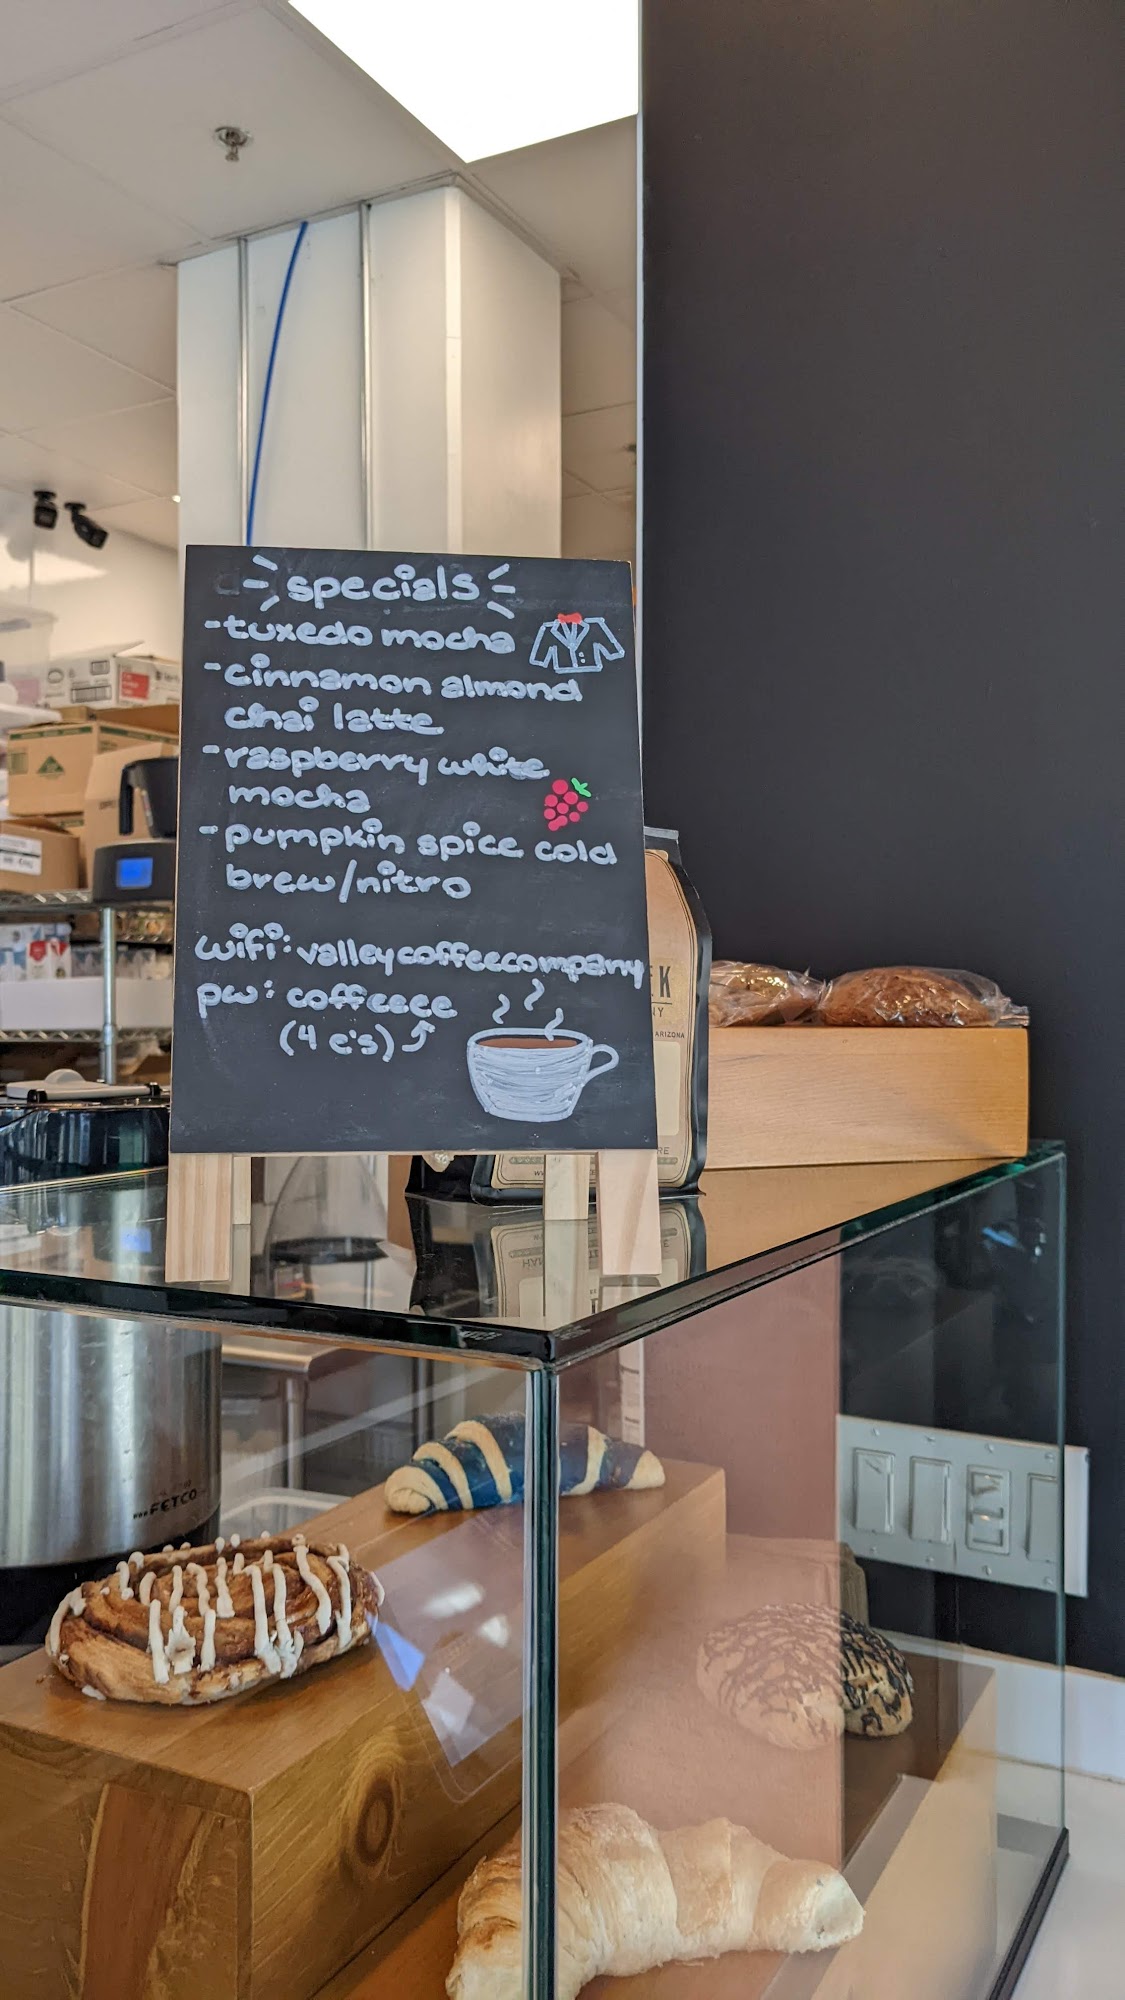 specials
-tuxedo mocha
-cinnamon almond
chai latte
-raspberry white
mocha
-pumpkin spice cold
brew/nitro
wifi: valleycoffeecompany
pw: coffeeee
(4 e's)
EK
NY
ARIZONA
FETCO